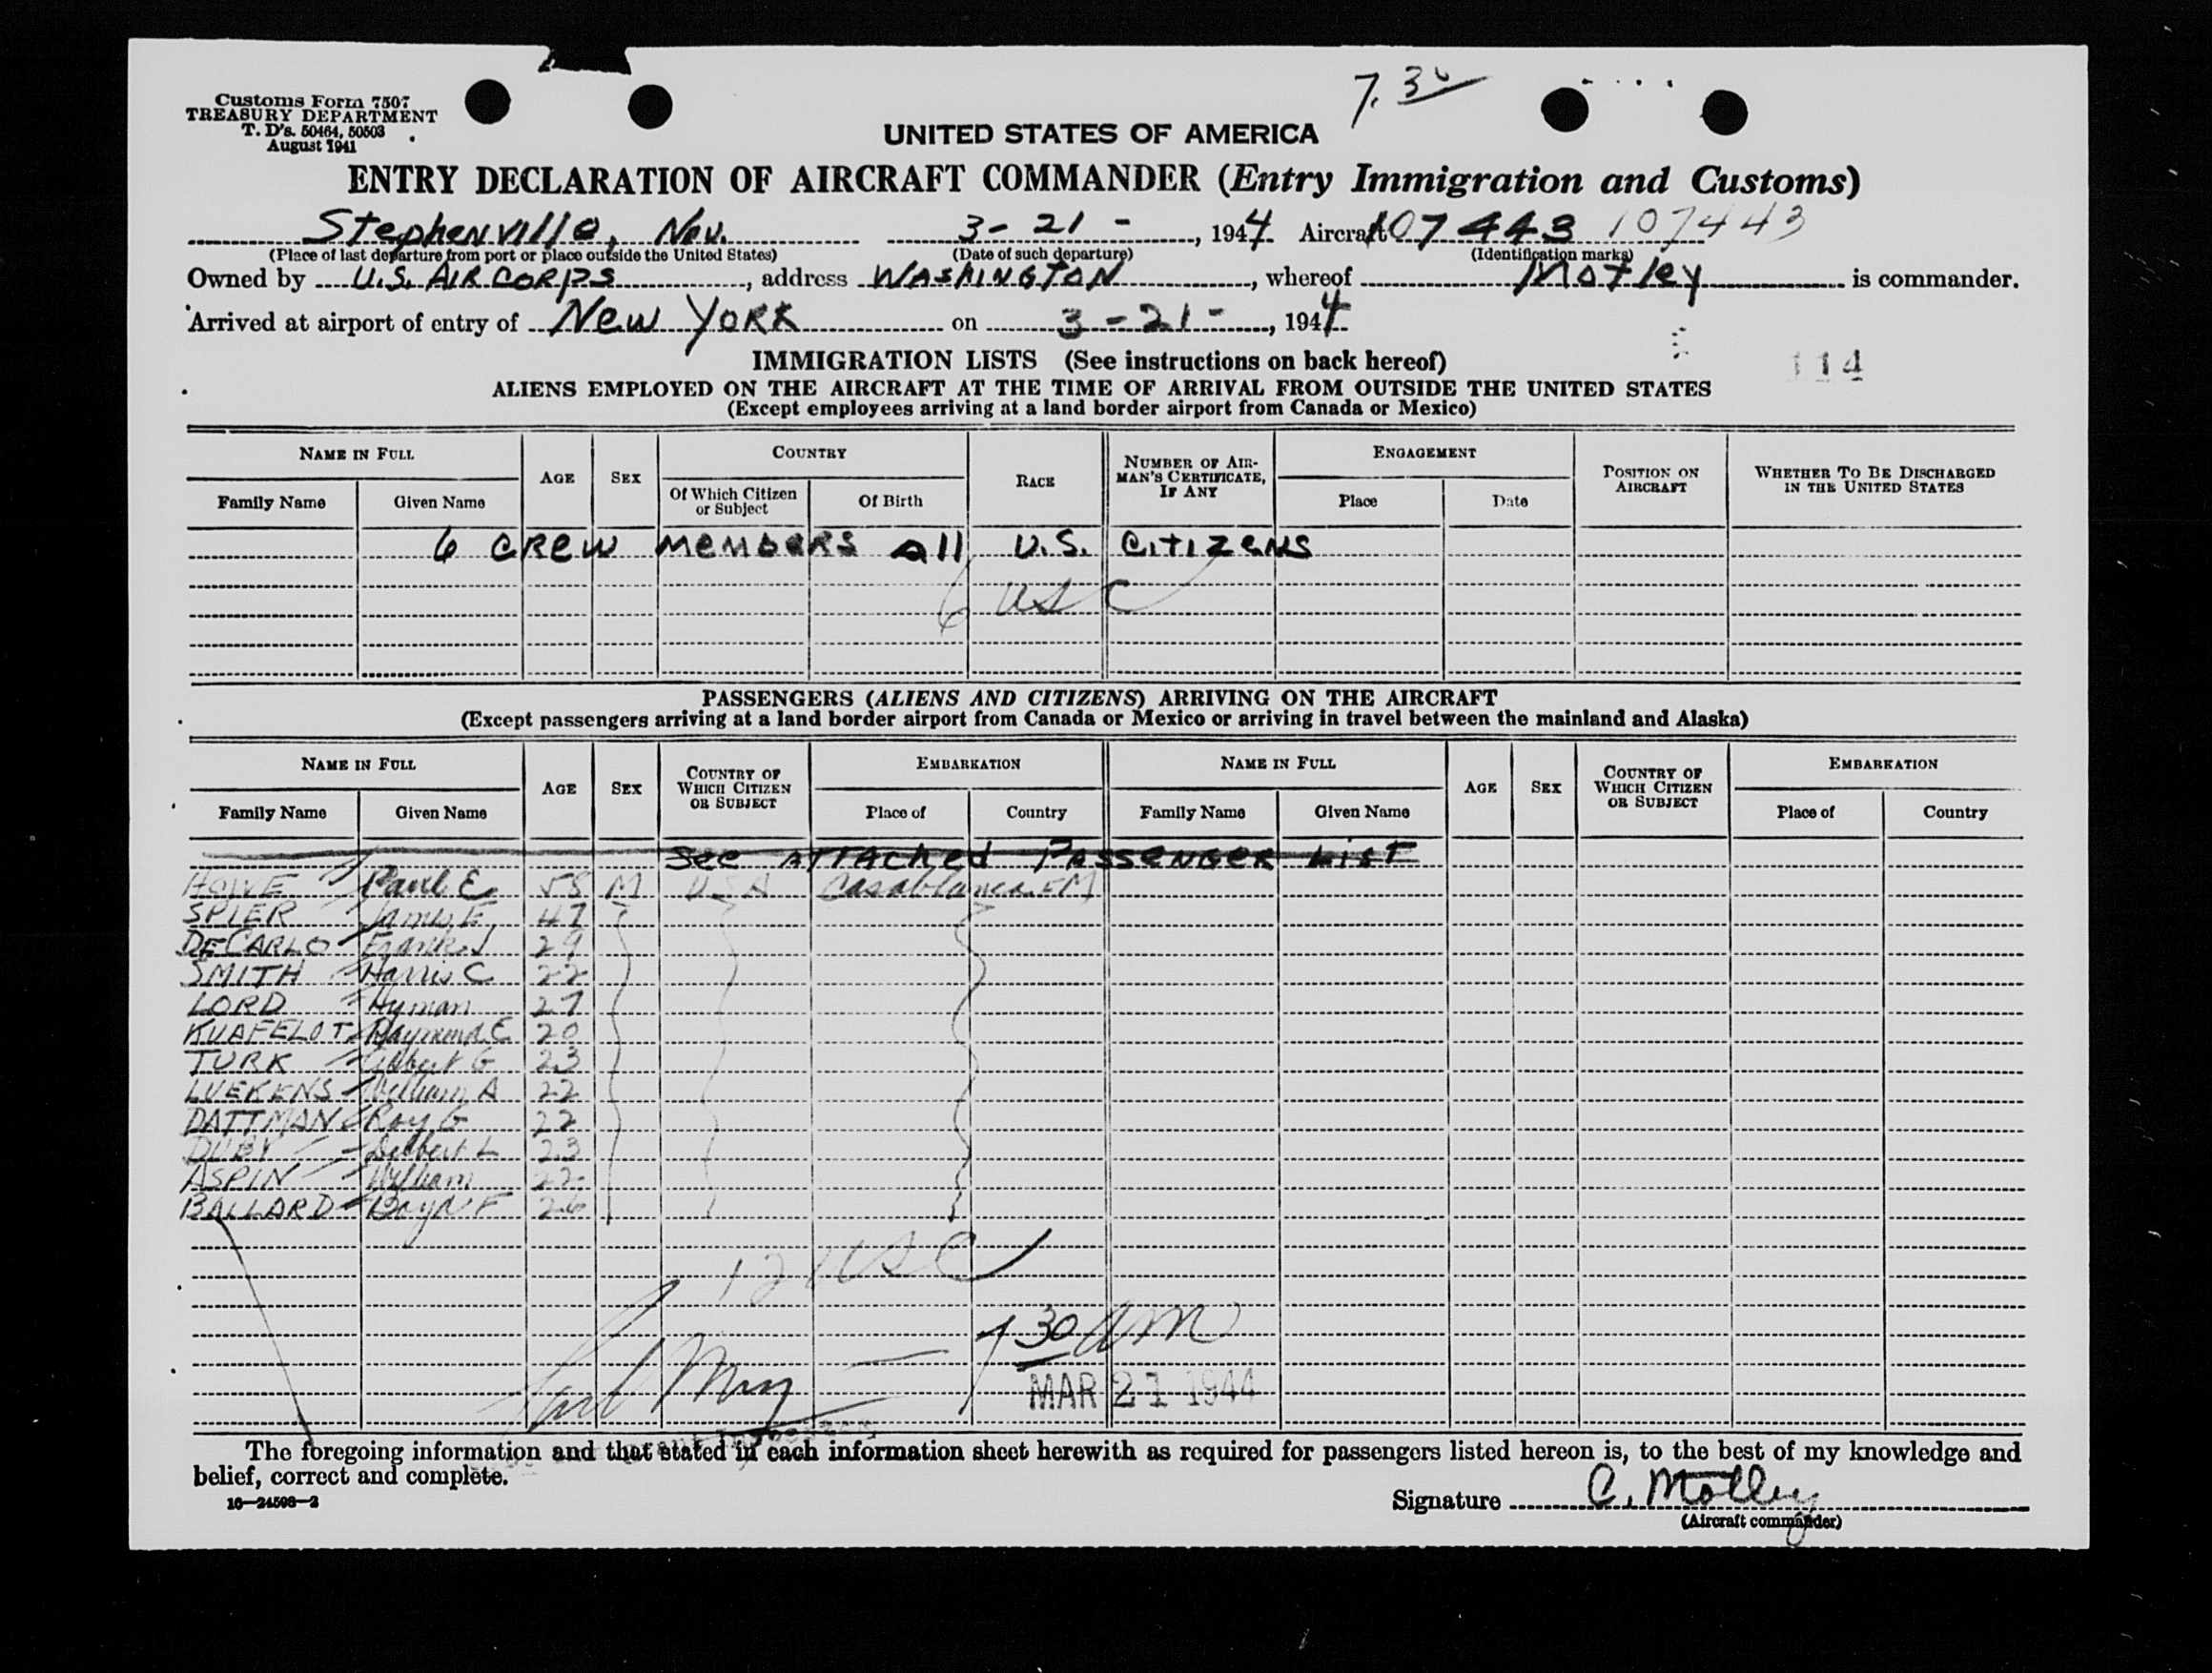 7.30
Customs Form 7507
TREASURY DEPARTMENT
T. D's. 50464, 50503
August 1941
UNITED STATES OF AMERICA
ENTRY DECLARATION OF AIRCRAFT COMMANDER (Entry Immigration and Customs)
Stephenville, Nov. 3-21-, 1944 Aircraft 107443 107443
(Place of last departure from port or place outside the United States) (Date of such departure) (Identification marks)
Owned by U.S. AIR CORPS, address WASHINGTON, whereof Motley is commander.
Arrived at airport of entry of New York on 3-21-, 1944
114
IMMIGRATION LISTS (See instructions on back hereof)
ALIENS EMPLOYED ON THE AIRCRAFT AT THE TIME OF ARRIVAL FROM OUTSIDE THE UNITED STATES
(Except employees arriving at a land border airport from Canada or Mexico)
NAME IN FULL AGE SEX COUNTRY RACE NUMBER OF AIRMAN'S CERTIFICATE, IF ANY ENGAGEMENT POSITION ON AIRCRAFT WHETHER TO BE DISCHARGED IN THE UNITED STATES
Family Name Given Name Of Which Citizen or Subject Of Birth Place Date
6 CREW MEMBERS All U.S. CITIZENS
6 USC
PASSENGERS (ALIENS AND CITIZENS) ARRIVING ON THE AIRCRAFT
(Except passengers arriving at a land border airport from Canada or Mexico or arriving in travel between the mainland and Alaska)
NAME IN FULL AGE SEX COUNTRY OF WHICH CITIZEN OR SUBJECT EMBARKATION NAME IN FULL AGE SEX COUNTRY OF WHICH CITIZEN OR SUBJECT EMBARKATION
Family Name Given Name Place of Country Family Name Given Name Place of Country
See ATTAched PASSENGER LIST
HOWE Paul E 58 M USA Casablanca FM
SPIER James F 47
DECARLO Frank J 29
SMITH Harris C 22
LORD Hyman 27
KUAFELOT Raymond E 20
TURK G 23
LUEKENS William A 22
DATTMAN Roy G 22
DUBY Delbert L 23
ASPIN William 22
BALLARD F 26
12 USC
7 30 AM
MAR 21 1944
The foregoing information and that stated in each information sheet herewith as required for passengers listed hereon is, to the best of my knowledge and
belief, correct and complete.
16—24598-2
Signature C. Motley
(Aircraft commander)